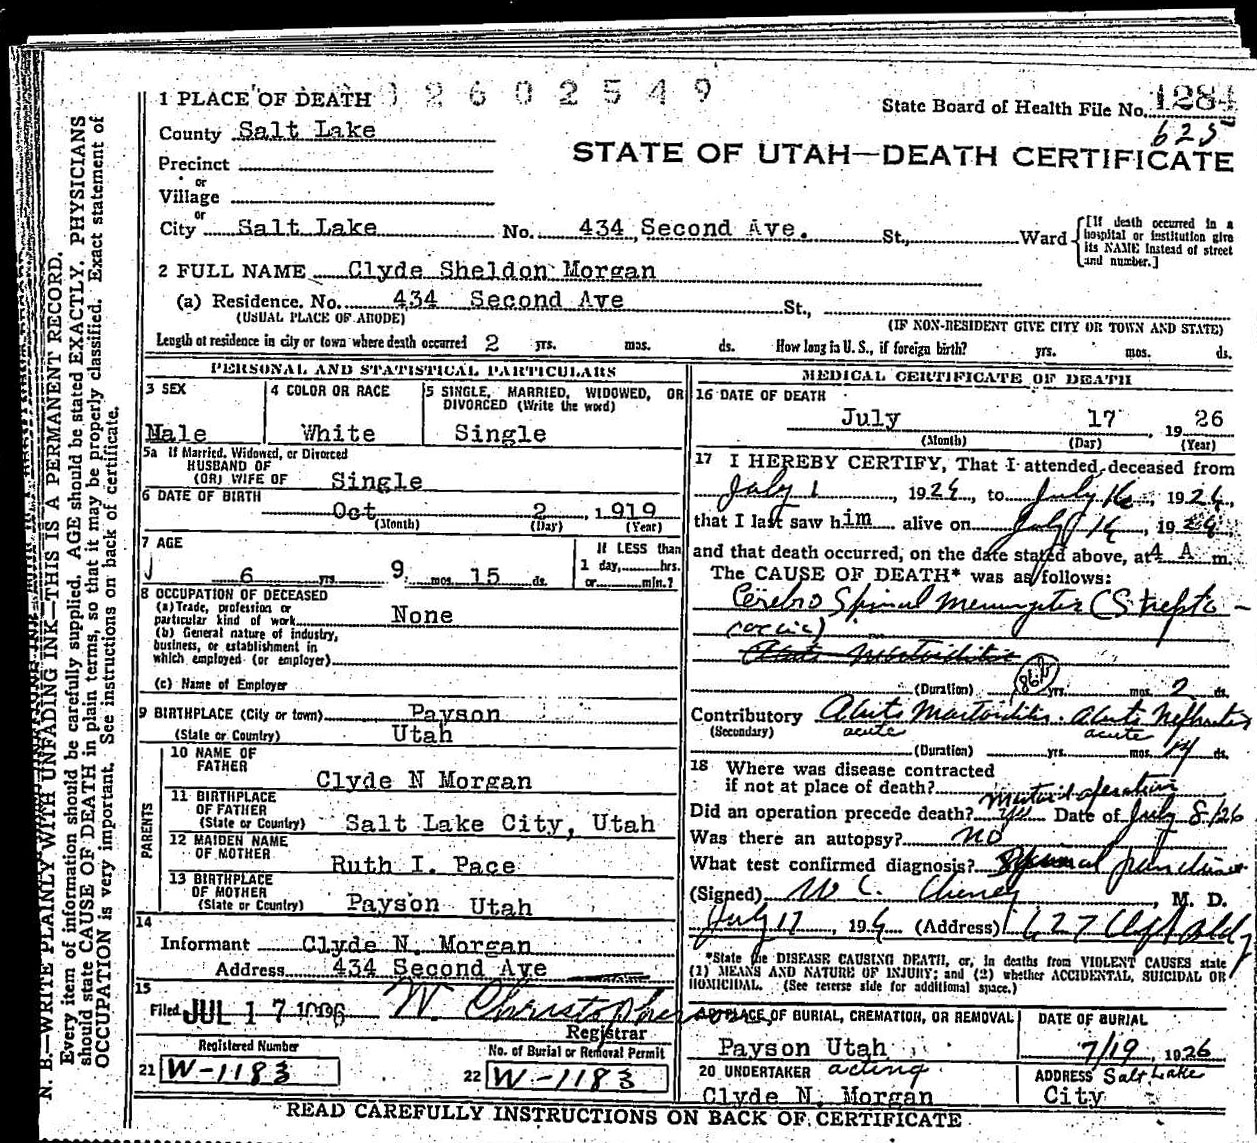 2602549
1 PLACE OF DEATH
State Board of Health File No. 1284
625
County Salt Lake
STATE OF UTAH—DEATH CERTIFICATE
Precinct
or
Village
or
City Salt Lake No. 434 Second Ave. St., Ward [If death occurred in a hospital or institution give its NAME instead of street and number.]
2 FULL NAME Clyde Sheldon Morgan
(a) Residence. No. 434 Second Ave St.,
(USUAL PLACE OF ABODE) (IF NON-RESIDENT GIVE CITY OR TOWN AND STATE)
Length of residence in city or town where death occurred 2 yrs. mos. ds. How long in U. S., if foreign birth? yrs. mos. ds.
PERSONAL AND STATISTICAL PARTICULARS
3 SEX
Male
4 COLOR OR RACE
White
5 SINGLE, MARRIED, WIDOWED, OR
DIVORCED (Write the word)
Single
5a If Married, Widowed, or Divorced
HUSBAND OF
(OR) WIFE OF Single
6 DATE OF BIRTH
Oct 2, 1919
(Month) (Day) (Year)
7 AGE
6 yrs. 9 mos. 15 ds.
If LESS than
1 day, hrs.
or min.?
8 OCCUPATION OF DECEASED
(a) Trade, profession or
particular kind of work None
(b) General nature of industry,
business, or establishment in
which employed (or employer)
(c) Name of Employer
9 BIRTHPLACE (City or town) Payson
(State or Country) Utah
PARENTS
10 NAME OF
FATHER
Clyde N Morgan
11 BIRTHPLACE
OF FATHER
(State or Country) Salt Lake City, Utah
12 MAIDEN NAME
OF MOTHER
Ruth I. Pace
13 BIRTHPLACE
OF MOTHER
(State or Country) Payson Utah
14
Informant Clyde N. Morgan
Address 434 Second Ave
15
Filed JUL 17 1926 W. Christopherson
Registrar
Registered Number
21 W-1183
No. of Burial or Removal Permit
22 W-1183
MEDICAL CERTIFICATE OF DEATH
16 DATE OF DEATH
July 17, 1926
(Month) (Day) (Year)
17 I HEREBY CERTIFY, That I attended deceased from
July 1, 1926 to July 16, 1926,
that I last saw him alive on July 16, 1926,
and that death occurred, on the date stated above, at 4 A m.
The CAUSE OF DEATH* was as follows:
Cerebro Spinal Meningitis (Strepto-
coccic)
Acute Mastoiditis
(Duration) 86b yrs. mos. 2 ds.
Contributory Acute Mastoiditis. Acute Nephritis
(Secondary) acute acute
(Duration) yrs. mos. 14 ds.
18 Where was disease contracted
if not at place of death?
mastoid operation
Did an operation precede death? yes Date of July 8/26
Was there an autopsy? no
What test confirmed diagnosis? Spinal puncture
(Signed) W C. Cheney, M. D.
July 17, 1926 (Address) 627 Clift Bldg
*State the DISEASE CAUSING DEATH, or, in deaths from VIOLENT CAUSES state
(1) MEANS AND NATURE OF INJURY; and (2) whether ACCIDENTAL, SUICIDAL OR
HOMICIDAL. (See reverse side for additional space.)
PLACE OF BURIAL, CREMATION, OR REMOVAL
Payson Utah
DATE OF BURIAL
7/19, 1926
20 UNDERTAKER acting
Clyde N. Morgan
ADDRESS Salt Lake
City
READ CAREFULLY INSTRUCTIONS ON BACK OF CERTIFICATE
N. B.—WRITE PLAINLY WITH UNFADING INK—THIS IS A PERMANENT RECORD.
Every item of information should be carefully supplied. AGE should be stated EXACTLY. PHYSICIANS
should state CAUSE OF DEATH in plain terms, so that it may be properly classified. Exact statement of
OCCUPATION is very important. See instructions on back of certificate.